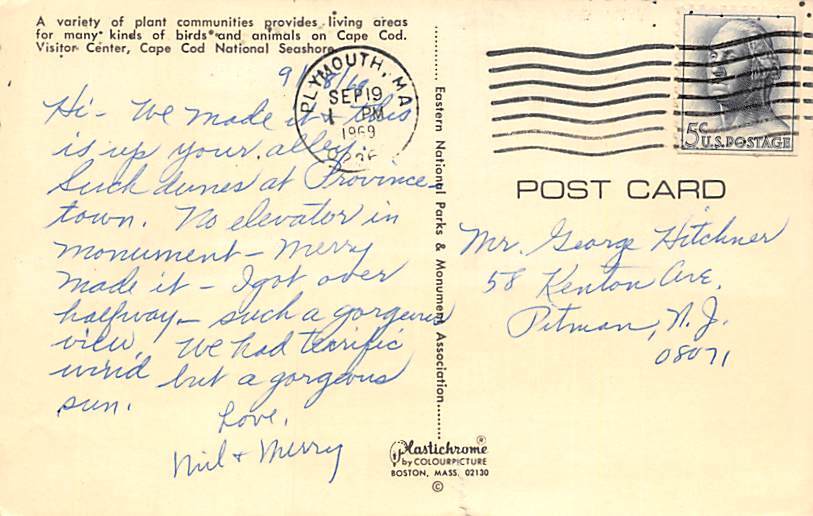 A variety of plant communities provides living areas
for many kinds of birds and animals on Cape Cod.
Visitor Center, Cape Cod National Seashore
PLYMOUTH, MA
SEP 19
PM
1969
5¢ U.S. POSTAGE
POST CARD
Hi - We made it & this
is up your alley.
Such dunes at Province-
town. No elevator in
monument - Merry
made it - I got over
halfway - such a gorgeous
view. We had terrific
wind but a gorgeous
sun.
Love,
Mil & Merry
Eastern National Parks & Monument Association
Mr. George Hitchner
58 Kenton Ave.
Pitman, N.J.
08071
Plastichrome®
by COLOURPICTURE
BOSTON, MASS. 02130
©